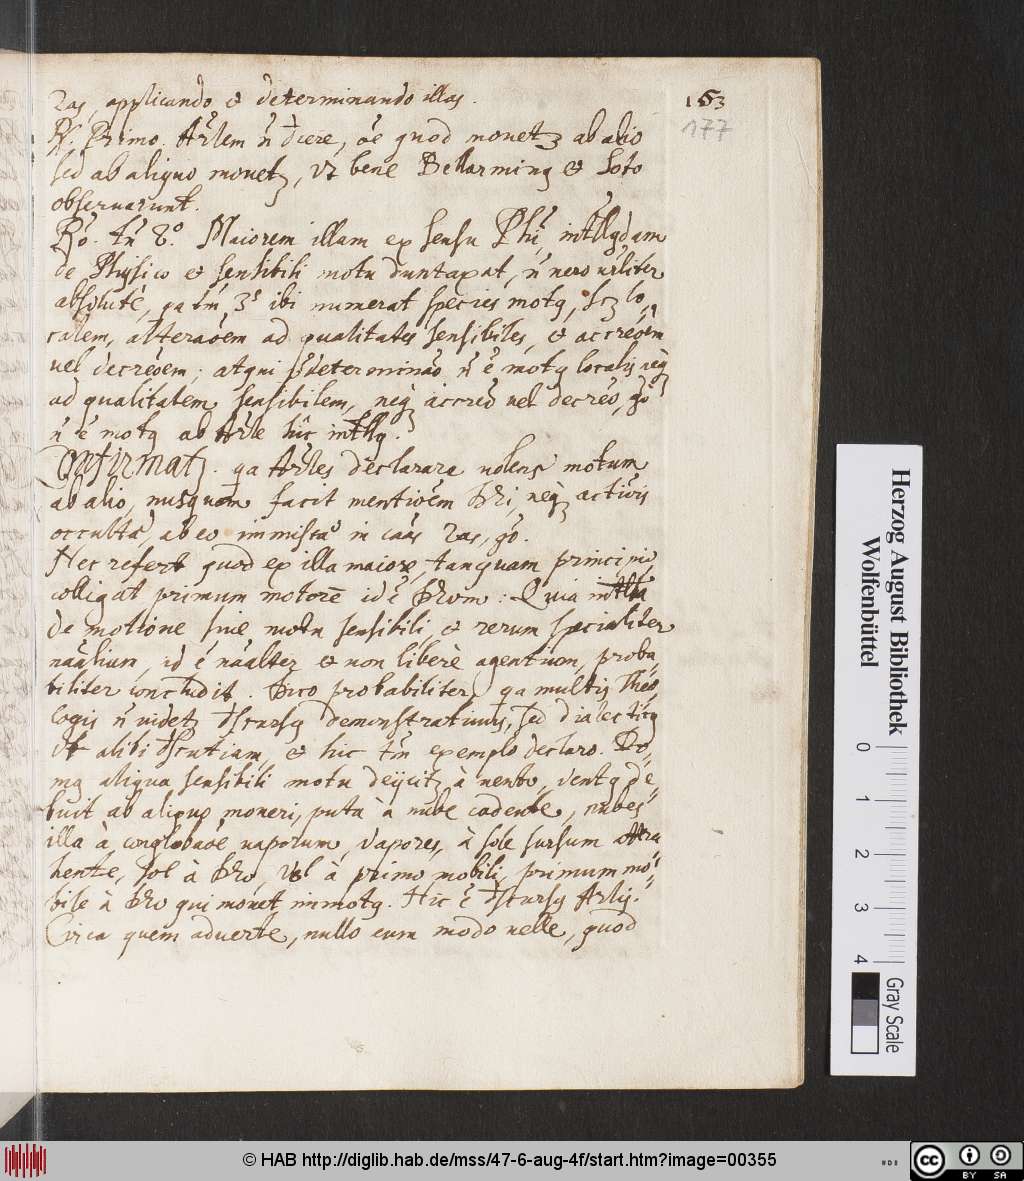 2as, applicando et determinando illas.
153
177
Rx. Primo. Arlem n dicere, oe quod mouetz ab alio
sed ab aliquo mouetz, vt bene Bellarming et Soto
obseruarunt.
Ro. tn 2o. Maiorem illam ex sensu Phi, intllgdam
de Physico et sensibili motu duntaxat, n uero urliter
absolute, qa tn, 3s ibi numerat species motg, sz lo„
calem, alteraoem ad qualitates sensibiles, et accreoem
uel decreoem; atqui determinao n e motg localis neqz
ad qualitatem sensibilem, neqz accreo uel decreo, go
n e motg ab Arle hic intllg.
Confirmatz. qa Arles declarare uolens motum
ab alio, nusquam facit mentioem Dei, neqz
occulta, ab eo immissa in caas 2as, go.
Nec refert quod ex illa maiore, tanquam principio
colligat primum motore id e Deum: Quia
de motione siue motu sensibili, et rerum specialiter
naalium, id e naalter et non libere agentium, proba„
biliter concludit. Dico probabiliter, qa multis Theo„
logis n uidetz discursg demonstratiuus, sed dialecticg
Ut alibi discutiam, et hic tn exemplo declaro. Do„
mg aliqua sensibili motu deijcitz à uento, ventg de„
buit ab aliquo moueri, puta à nube cadente, nubes
illa à conglobaoe uaporum, Vapores, à sole sursum attra
hente, sol à Deo, Vel à primo mobili, primum mo„
bile à Deo qui mouet immotg. Hic e discursg Arlis.
Circa quem aduerte, nullo eum modo uelle, quod
Herzog August Bibliothek
Wolfenbüttel
0 1 2 3 4
Gray Scale
© HAB http://diglib.hab.de/mss/47-6-aug-4f/start.htm?image=00355
cc BY SA